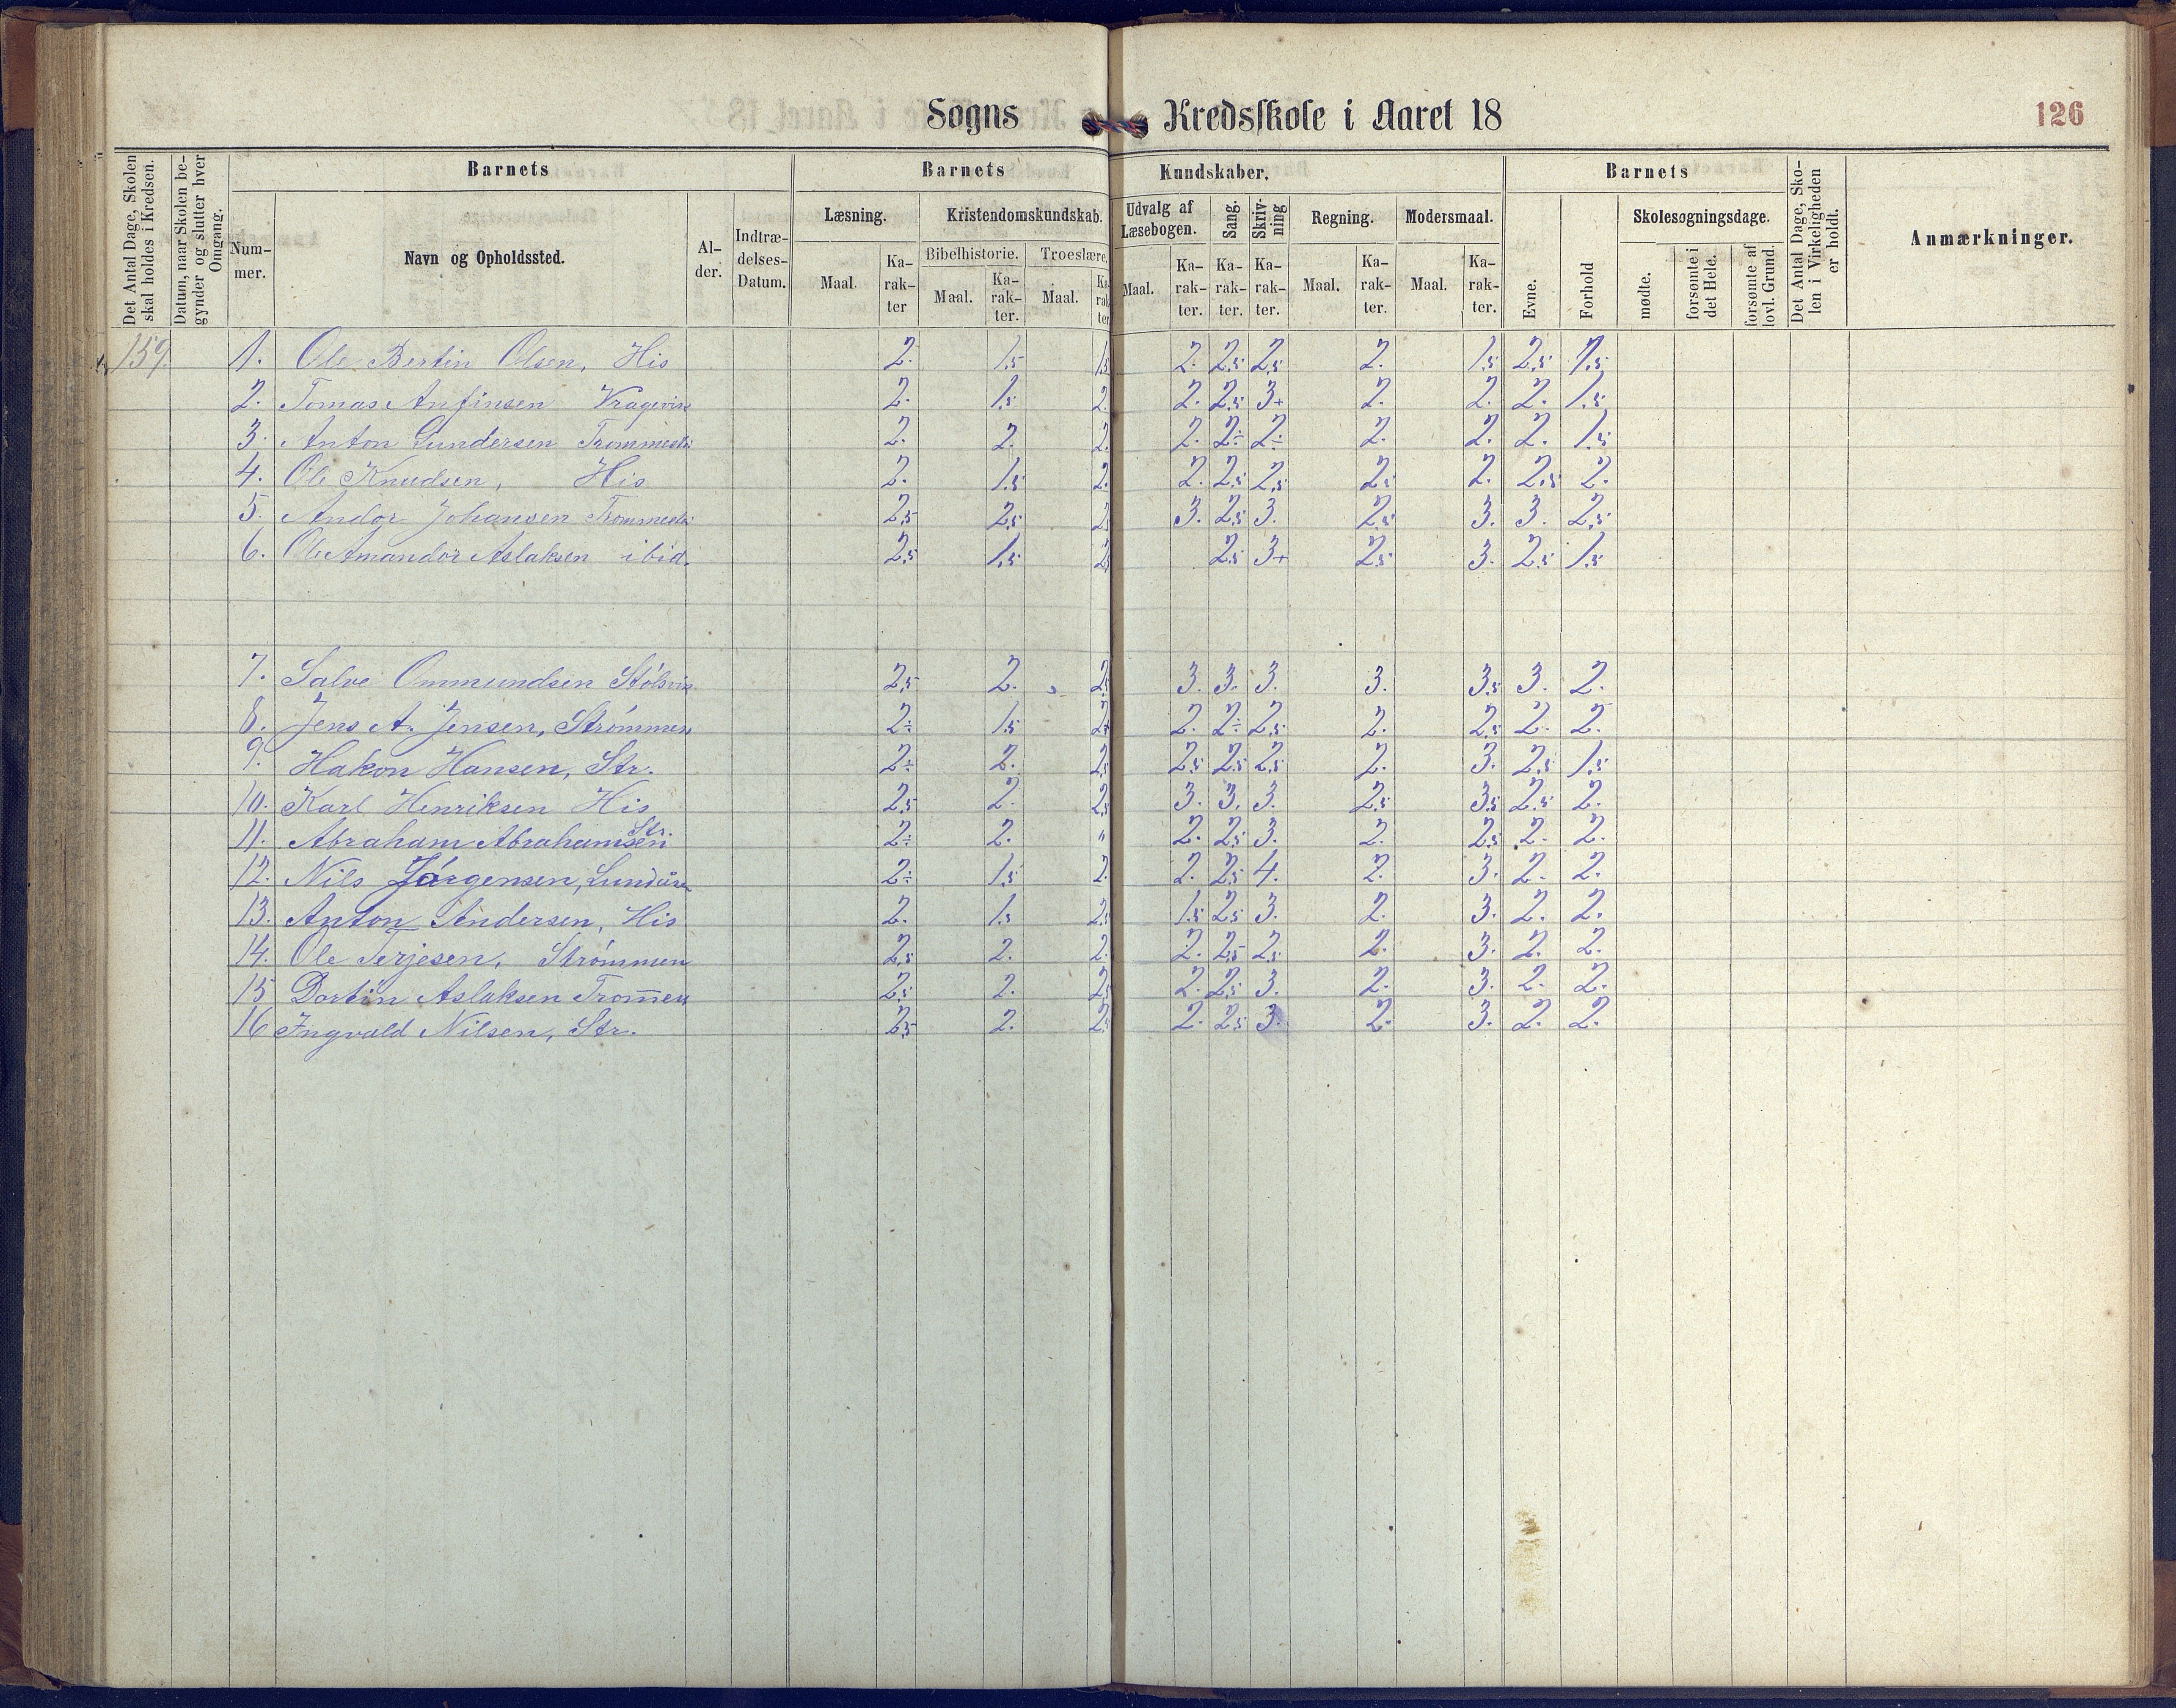 Sogns Kredsskole i Aaret 18 126
Det Antal Dage, Skolen skal holdes i Kredsen.
Datum, naar Skolen begynder og slutter hver Omgang.
Barnets
Nummer.
Navn og Opholdssted.
Alder.
Indtrædelses-Datum.
Barnets Kundskaber.
Læsning.
Maal.
Karakter
Kristendomskundskab.
Bibelhistorie.
Maal.
Karakter.
Troeslære.
Maal.
Karakter
Udvalg af Læsebogen.
Maal.
Karakter.
Sang.
Karakter.
Skrivning
Karakter.
Regning.
Maal.
Karakter.
Modersmaal.
Maal.
Karakter.
Barnets
Evne.
Forhold
Skolesøgningsdage.
mødte.
forsømte i det Hele.
forsømte af lovl. Grund.
Det Antal Dage, Skolen i Virkeligheden er holdt.
Anmærkninger.
159. 1. Ole Bertin Olsen, His 2. 1,5 1,5 2. 2,5 2,5 2. 1,5 2,5 1,5
2. Tomas Anfinsen 2. 1,5 2. 2. 2,5 3+ 2. 2. 2. 1,5
3. Anton Gundersen 2. 2. 2. 2. 2÷ 2÷ 2. 2. 2. 1,5
4. Ole Knudsen, His 2. 1,5 2. 2. 2,5 2,5 2,5 2. 2,5 2.
5. Andor Johansen 2,5 2,5 2,5 3. 2,5 3. 2,5 3. 3. 2,5
6. Ole Amandor Aslaksen ibid. 2,5 1,5 2,5 3+ 2,5 3. 2,5 1,5
7. Salve Ommundsen 2,5 2. 2,5 3. 3. 3. 3. 3,5 3. 2.
8. Jens A. Jensen, Strømmen 2÷ 1,5 2+ 2. 2÷ 2,5 2. 2,5 2. 2.
9. Hakon Hansen, Str. 2÷ 2. 2,5 2,5 2,5 2,5 2. 3. 2,5 1,5
10. Karl Henriksen His 2,5 2. 2,5 3. 3. 3. 2,5 3,5 2,5 2.
11. Abraham Abrahamsen Str. 2÷ 2. " 2. 2,5 3. 2. 2,5 2. 2.
12. Nils Jørgensen, 2÷ 1,5 2. 2. 2,5 4. 2. 3. 2. 2.
13. Anton Andersen, His 2. 1,5 2,5 1,5 2,5 3. 2. 3. 2. 2.
14. Ole Terjesen, Strømmen 2,5 2. 2. 2. 2,5 2,5 2. 3. 2. 2.
15 Dortin Aslaksen 2,5 2. 2,5 2. 2,5 3. 2. 3. 2. 2.
16 Ingvald Nilsen, Str. 2,5 2. 2,5 2. 2,5 3. 2. 3. 2. 2.